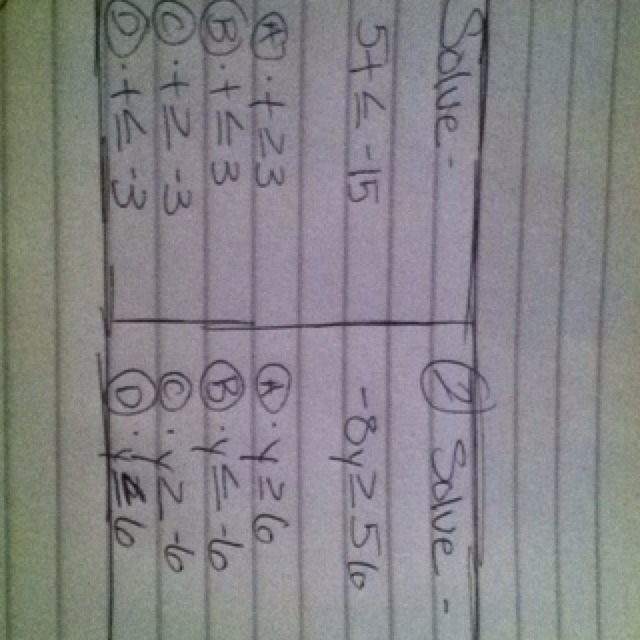 Solve-
5t ≤ -15
Ⓐ. t ≥ 3
Ⓑ. t ≤ 3
Ⓒ. t ≥ -3
Ⓓ. t ≤ -3
② Solve-
-8y ≥ 56
Ⓐ. y ≥ 6
Ⓑ. y ≤ -6
Ⓒ. y ≥ -6
Ⓓ. y ≤ 6